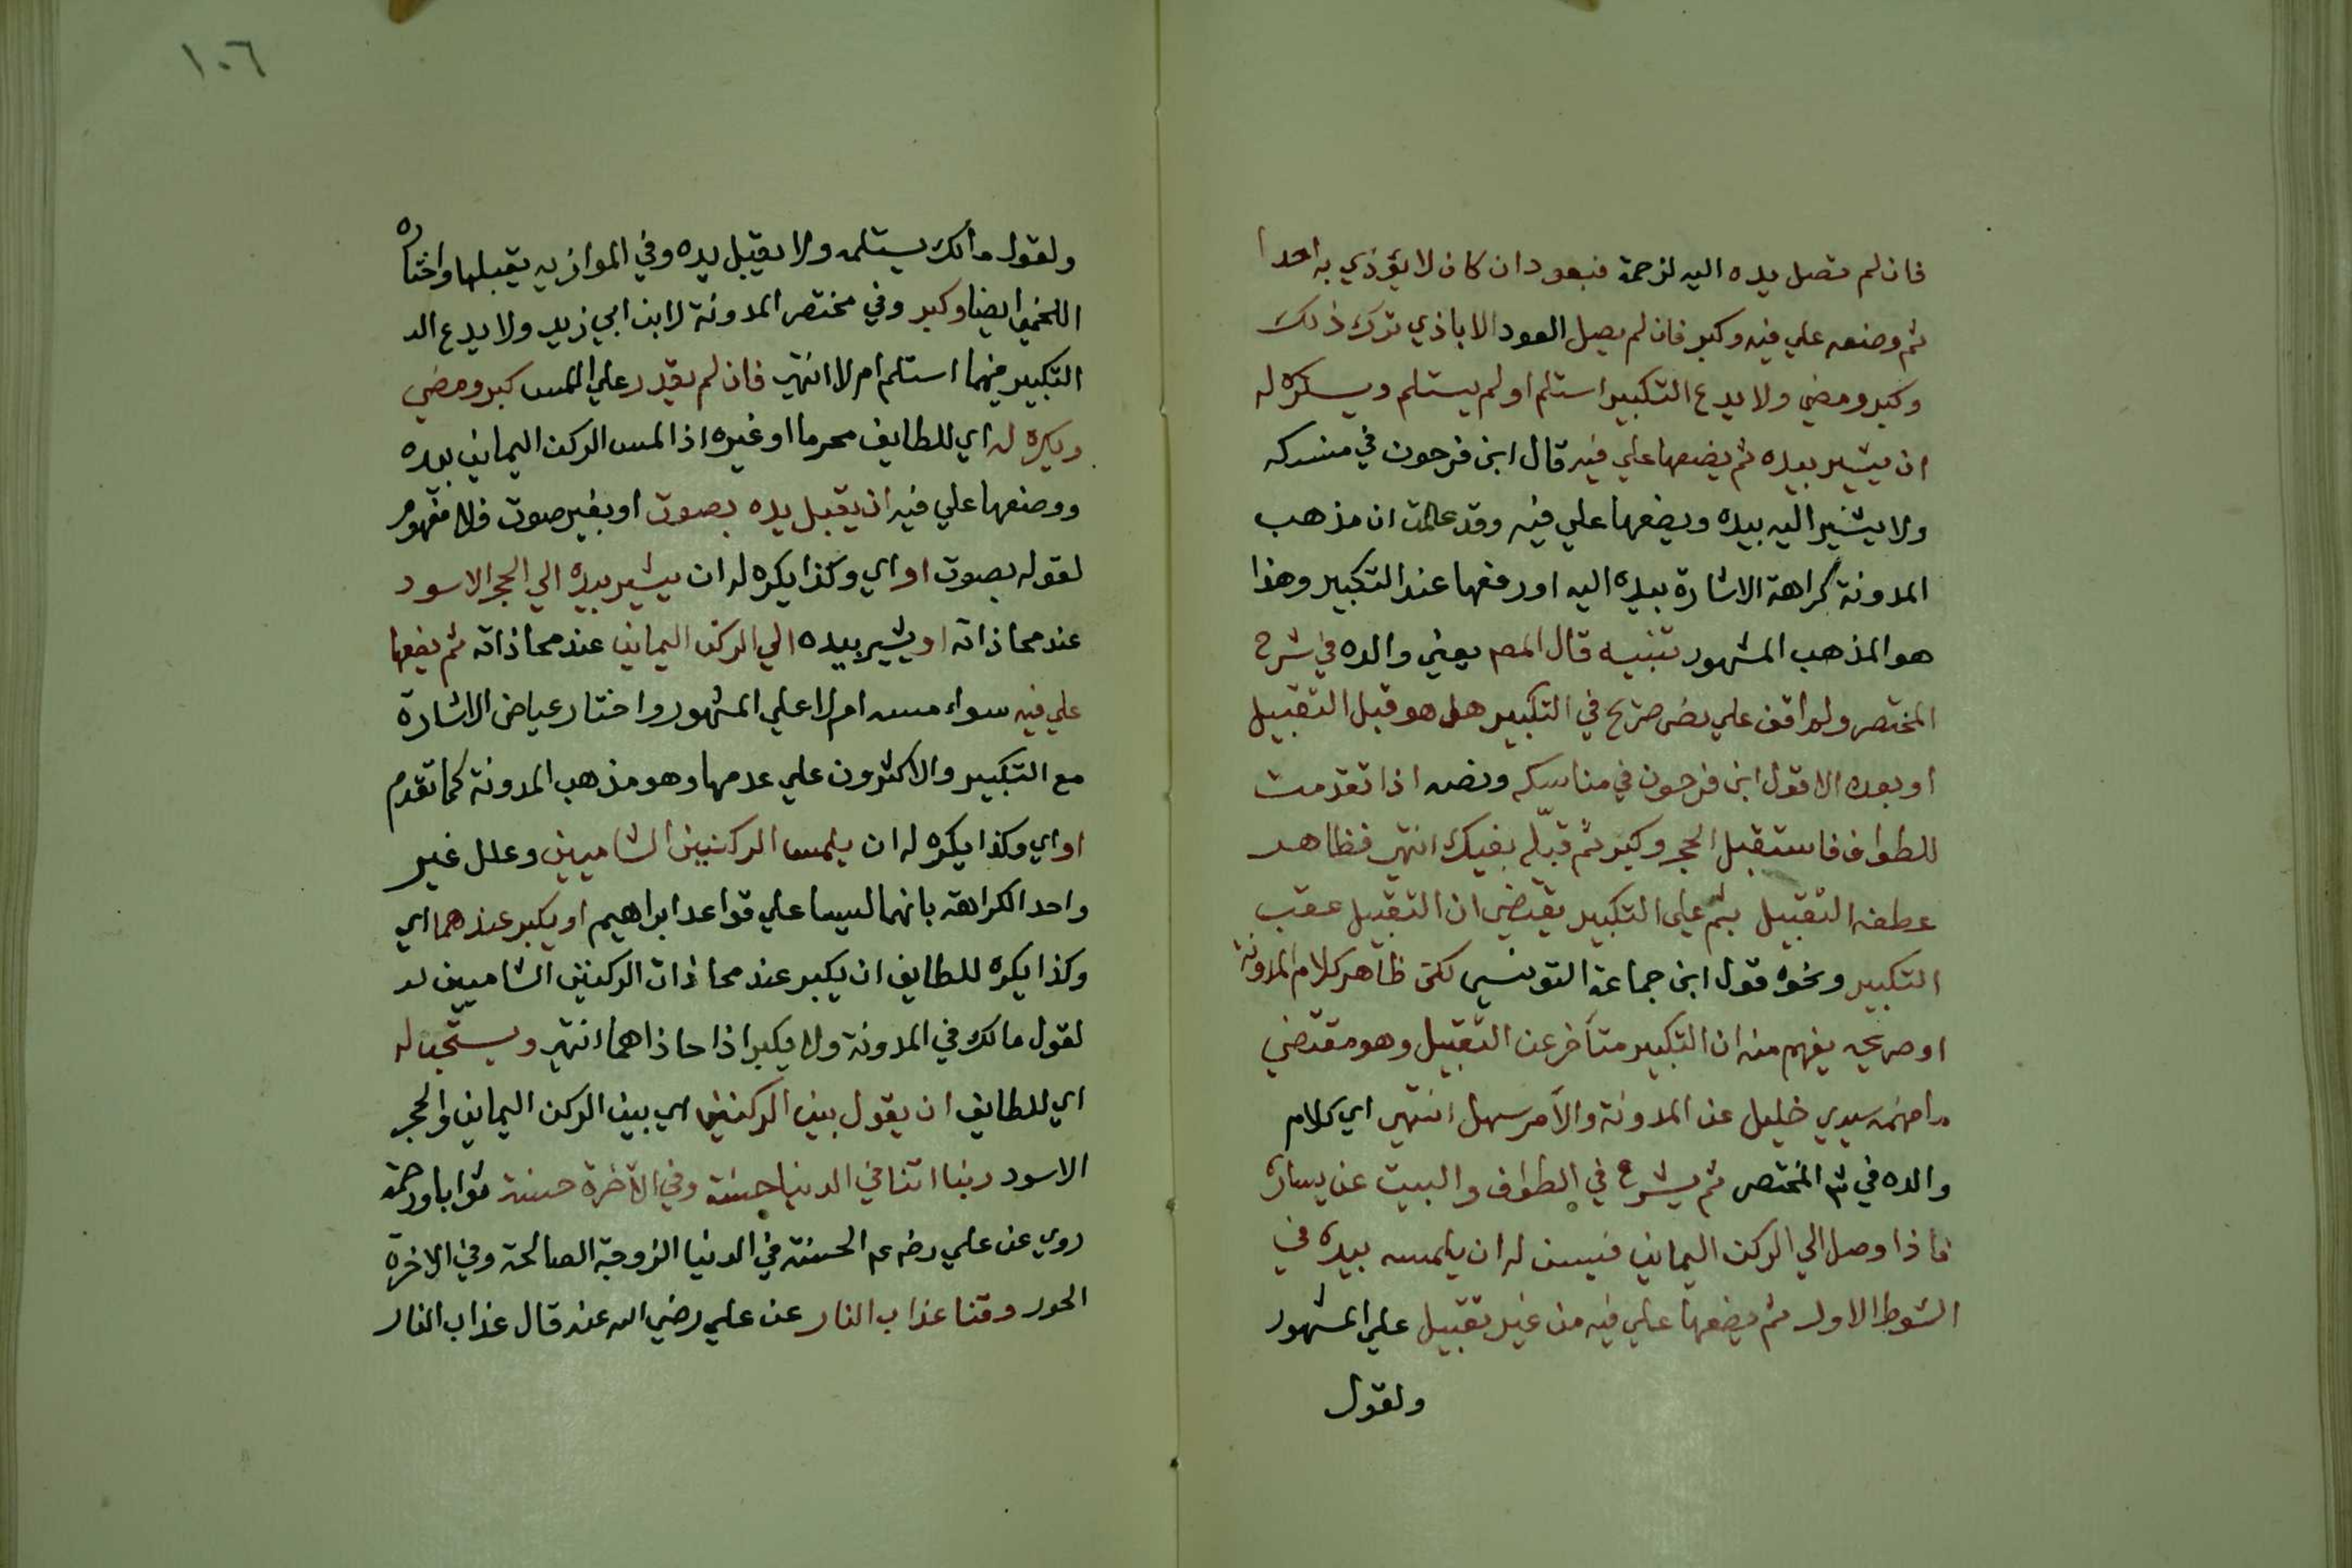 فان لم تصل يده اليه لزحمة فبعود ان كان لا يؤذي به احدا
ثم وضعه علي فيه وكبر فان لم يصل العود الا باذي ترك ذلك
وكبر ومضي ولا يدع التكبير استلم او لم يستلم ويكره له
ان يشير بيده ثم يضعها علي فيه قال ابن فرحون في منسكه
ولا يشير اليه بيده ويضعها علي فيه وقد علمت ان مذهب
المدونة كراهة الاشارة بيده اليه او رفعها عند التكبير وهذا
هو المذهب المشهور تنبيه قال المص يعني والده في شرح
المختصر ولم اقف علي نص صريح في التكبير هل هو قبل التقبيل
او بعده الا قول ابن فرحون في مناسكه ونصه اذا تقدمت
للطواف فاستقبل الحجر وكبر ثم قبّله بفيك انتهي فظاهر
عطفه التقبيل بثم علي التكبير يقتضي ان التقبيل عقب
التكبير ونحوه قول ابن جماعة التونسي لكن ظاهر كلام المدونة
او صريحه يفهم منه ان التكبير متأخر عن التقبيل وهو مقتضي
ما فهمه سيدي خليل عن المدونة والأمر سهل انتهي اي كلام
والده في ش المختصر ثم يشرع في الطواف والبيت عن يساره
فاذا وصل الي الركن اليماني فيسن له ان يلمسه بيده في
الشوط الاول ثم يضعها علي فيه من غير تقبيل علي المشهور
ولقول
١٠٦
ولقول مالك يستلمه ولا يقبل يده وفي الموازيه يقبلها واختاره
اللخمي ايضا وكبر وفي مختصر المدونة لابن ابي زيد ولا يدع الد
التكبير فيهما استلم ام لا انتهي فان لم يقدر علي اللمس كبر ومضي
ويكره له اي للطايف محرما او غيره اذا لمس الركن اليماني بيده
ووضعها علي فيه ان يقبل يده بصوت او بغير صوت فلا مفهوم
لقوله بصوت او اي وكذا يكره له ان يشير بيده الي الحجر الاسود
عند محاذاته او يشير بيده الي الركن اليماني عند محاذاته ثم يضعها
علي فيه سواء مسه ام لا علي المشهور واختار عياض الاشارة
مع التكبير والاكثرون علي عدمها وهو مذهب المدونة كما تقدم
او اي وكذا يكره له ان يلمس الركنين الشاميين وعلل غير
واحد الكراهة بانهما ليسا علي قواعد ابراهيم او يكبر عندهما اي
وكذا يكره للطايف ان يكبر عند محاذات الركنين الشاميين لد
لقول مالك في المدونة ولا يكبر اذا حاذاهما انتهي ويستحب له
اي للطايف ان يقول بين الركنين اي بين الركن اليماني والحجر
الاسود ربنا اتنا في الدنيا حسنة وفي الآخرة حسنة ثوابا ورحمة
روي عن علي رضي عه الحسنة في الدنيا الزوجة الصالحة وفي الاخرة
الحور وقنا عذاب النار عن علي رضي الله عنه قال عذاب النار